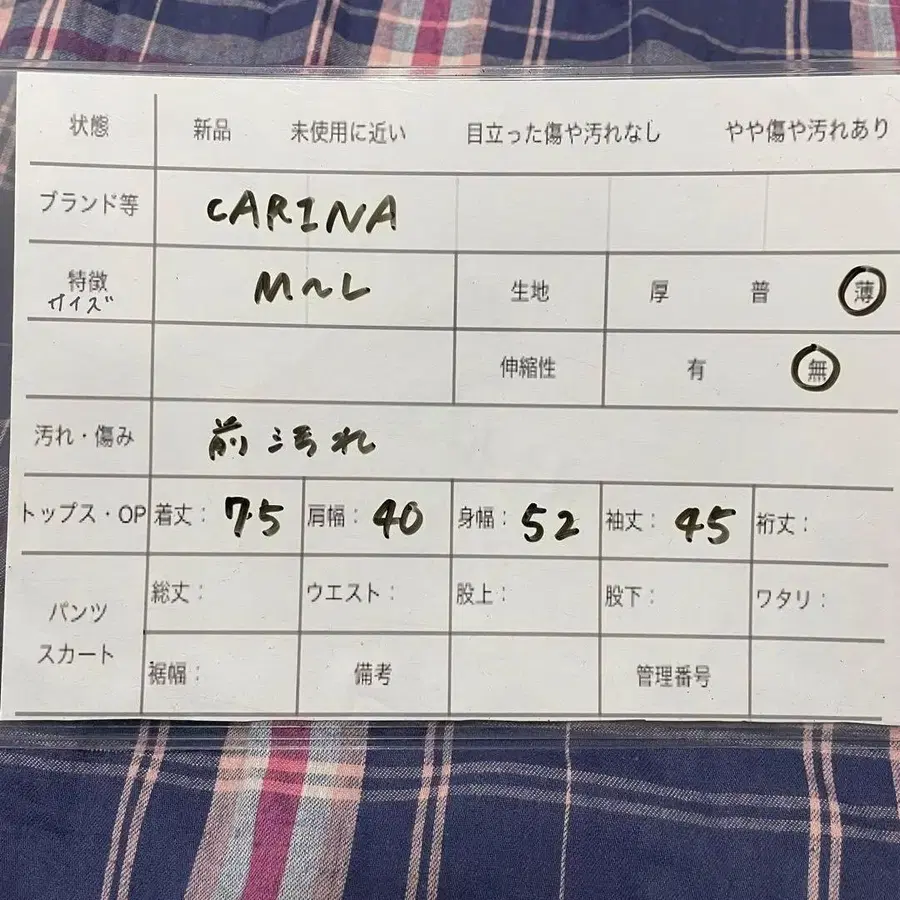 状態 新品 未使用に近い 目立った傷や汚れなし やや傷や汚れあり
ブランド等 CARINA
特徴 M~L 生地 厚 普 薄
サイズ
伸縮性 有 無
汚れ・傷み 前汚れ
トップス・OP 着丈: 75 肩幅: 40 身幅: 52 袖丈: 45 裄丈:
パンツ 総丈: ウエスト: 股上: 股下: ワタリ:
スカート 裾幅: 備考 管理番号